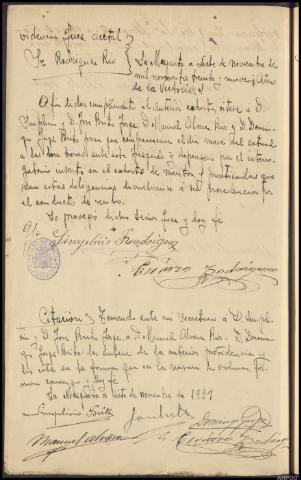 videncia Juez acctal
Sr Rodriguez Rio
La Mezquita a siete de noviembre de
mil novecientos treinta y nueve ¡Año
de la Victoria!
A fin de dar cumplimiento al anterior exhorto, cítese a D.
Simplicio y D. José Benito Jorge, D. Manuel Alvarez Rio y D. Domin
go Jorge Benito para que comparezcan el día nueve del actual
a las horas ante este Juzgado a deponer por el interro
gatorio inserto en el exhorto de meritos y practicadas que
sean estas diligencias devuelvanse a su procedencia por
el conducto de recibo.
Lo proveyó dicho Señor Juez y doy fe
Simplicio Rodriguez
Cesáreo
Citacion Teniendo ante mi Secretario a D. Simpli
cio y D. José Benito Jorge, a D. Manuel Alvarez Rio y D. Domin
go Jorge Benito les enteré de la anterior providencia y
les cité en la forma que en la misma se ordena, fir
man conmigo y doy fe
La Mezquita a siete de noviembre de 1939
Simplicio Benito
José Benito
Domingo Jorge
Manuel Alvarez
Cesáreo